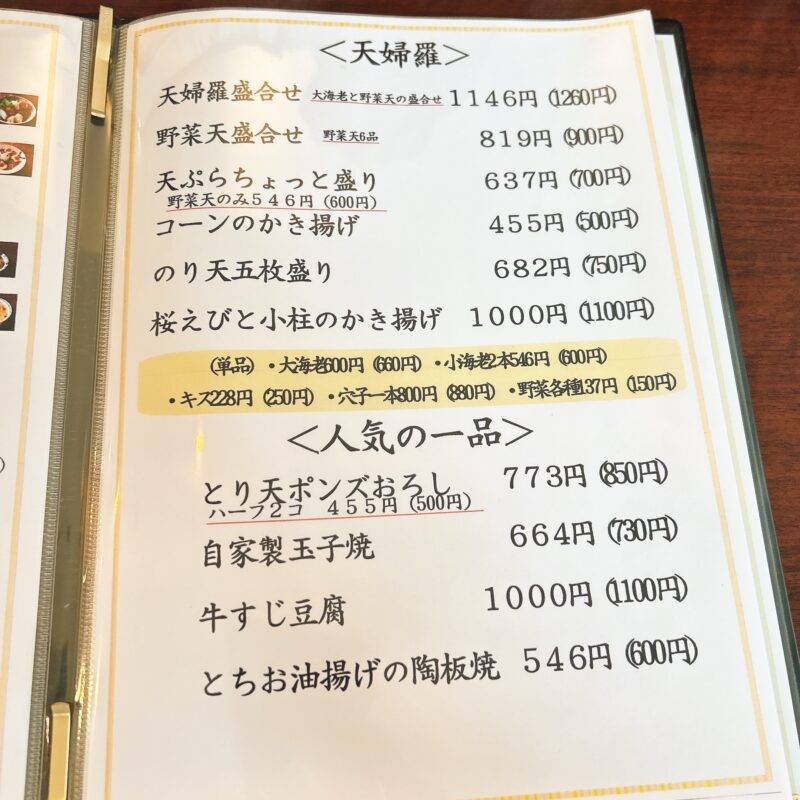 ＜天婦羅＞
天婦羅盛合せ 大海老と野菜天の盛合せ 1146円 (1260円)
野菜天盛合せ 野菜天6品 819円 (900円)
天ぷらちょっと盛り 637円 (700円)
野菜天のみ546円 (600円)
コーンのかき揚げ 455円 (500円)
のり天五枚盛り 682円 (750円)
桜えびと小柱のかき揚げ 1000円 (1100円)
(単品) ・大海老600円 (660円) ・小海老2本546円 (600円)
・キス228円 (250円) ・穴子一本800円 (880円) ・野菜各種137円 (150円)
＜人気の一品＞
とり天ポンズおろし 773円 (850円)
ハーフ2コ 455円 (500円)
自家製玉子焼 664円 (730円)
牛すじ豆腐 1000円 (1100円)
とちお油揚げの陶板焼 546円 (600円)